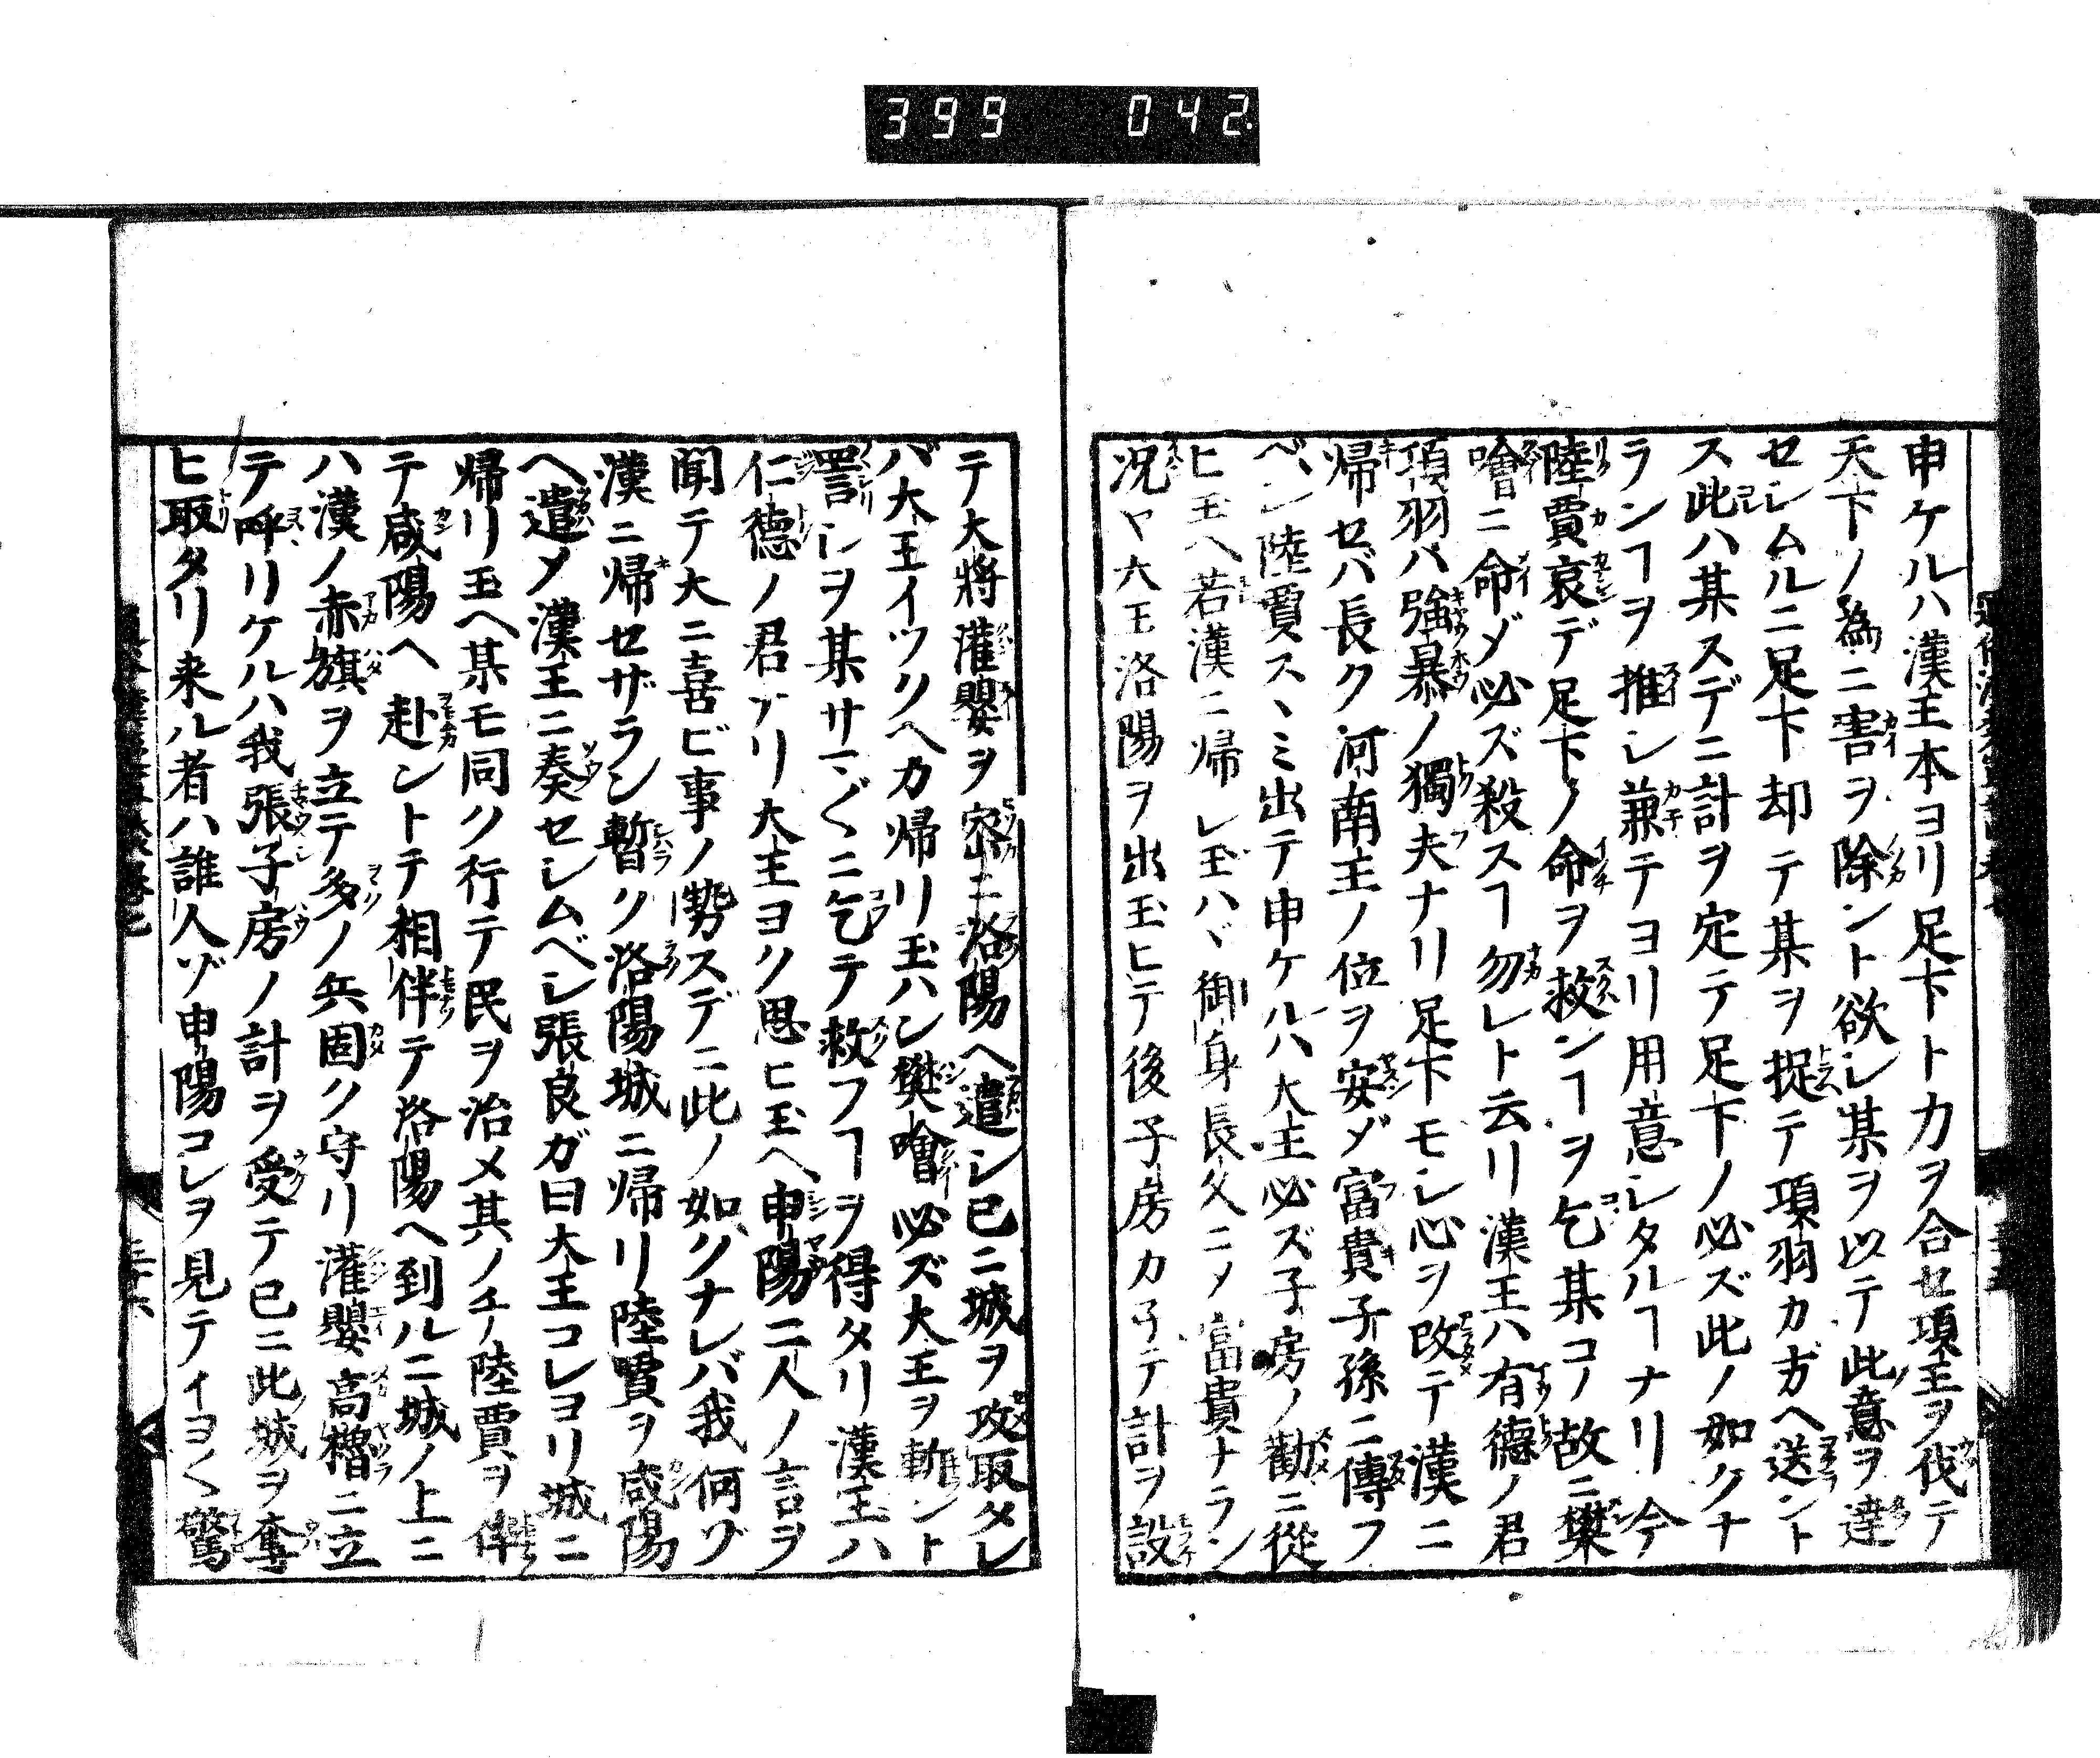 399 042
申ケルハ漢王本ヨリ足下ト力ヲ合セ項王ヲ伐テ
天下ノ為ニ害ヲ除ント欲レ某ヲ以テ此意ヲ達
セレムルニ足下却テ某ヲ捉テ項羽カ方ヘ送ント
ス此ハ某スデニ計ヲ定テ足下ノ必ズ此ノ如クナ
ランヿヲ推レ兼テヨリ用意レタルヿナリ今
陸賈哀デ足下ノ命ヲ救ンヿヲ乞某コノ故ニ樊
噲ニ命ジ必ズ殺スヿ勿レト云リ漢王ハ有德ノ君
項羽ハ強暴ノ獨夫ナリ足下モレ心ヲ改テ漢ニ
帰セバ長ク河南王ノ位ヲ安ジ富貴子孫ニ傳フ
ベレ陸賈スヽミ出テ申ケルハ大王必ズ子房ノ勸ニ從
ヒ玉ヘ若漢ニ帰レ玉ハヾ御身長久ニメ富貴ナラン
况ヤ大王洛陽ヲ出玉ヒテ後子房カ子テ計ヲ設
テ大將灌嬰ヲ密ニ洛陽ヘ遣レ已ニ城ヲ攻取タレ
バ大王イツクヘカ帰リ玉ハン樊噲必ズ大王ヲ斬ント
罵レヲ某サマ〲ニ乞テ救フヿヲ得タリ漢王ハ
仁德ノ君ナリ大王ヨク思ヒ玉ヘ申陽二人ノ言ヲ
聞テ大ニ喜ビ事ノ勢スデニ此ノ如クナレバ我何ゾ
漢ニ帰セザラン暫ク洛陽城ニ帰リ陸賈ヲ咸陽
ヘ遣メ漢王ニ奏セレムベレ張良ガ曰大王コレヨリ城ニ
帰リ玉ヘ某モ同ク行テ民ヲ治メ其ノチ陸賈ヲ伴
テ咸陽ヘ赴ントテ相伴テ洛陽ヘ到ルニ城ノ上ニ
ハ漢ノ赤旗ヲ立テ多ノ兵固ク守リ灌嬰高櫓ニ立
テ呼リケルハ我張子房ノ計ヲ受テ已ニ此城ヲ奪
ヒ取タリ来ル者ハ誰人ゾ申陽コレヲ見テイヨ〱驚